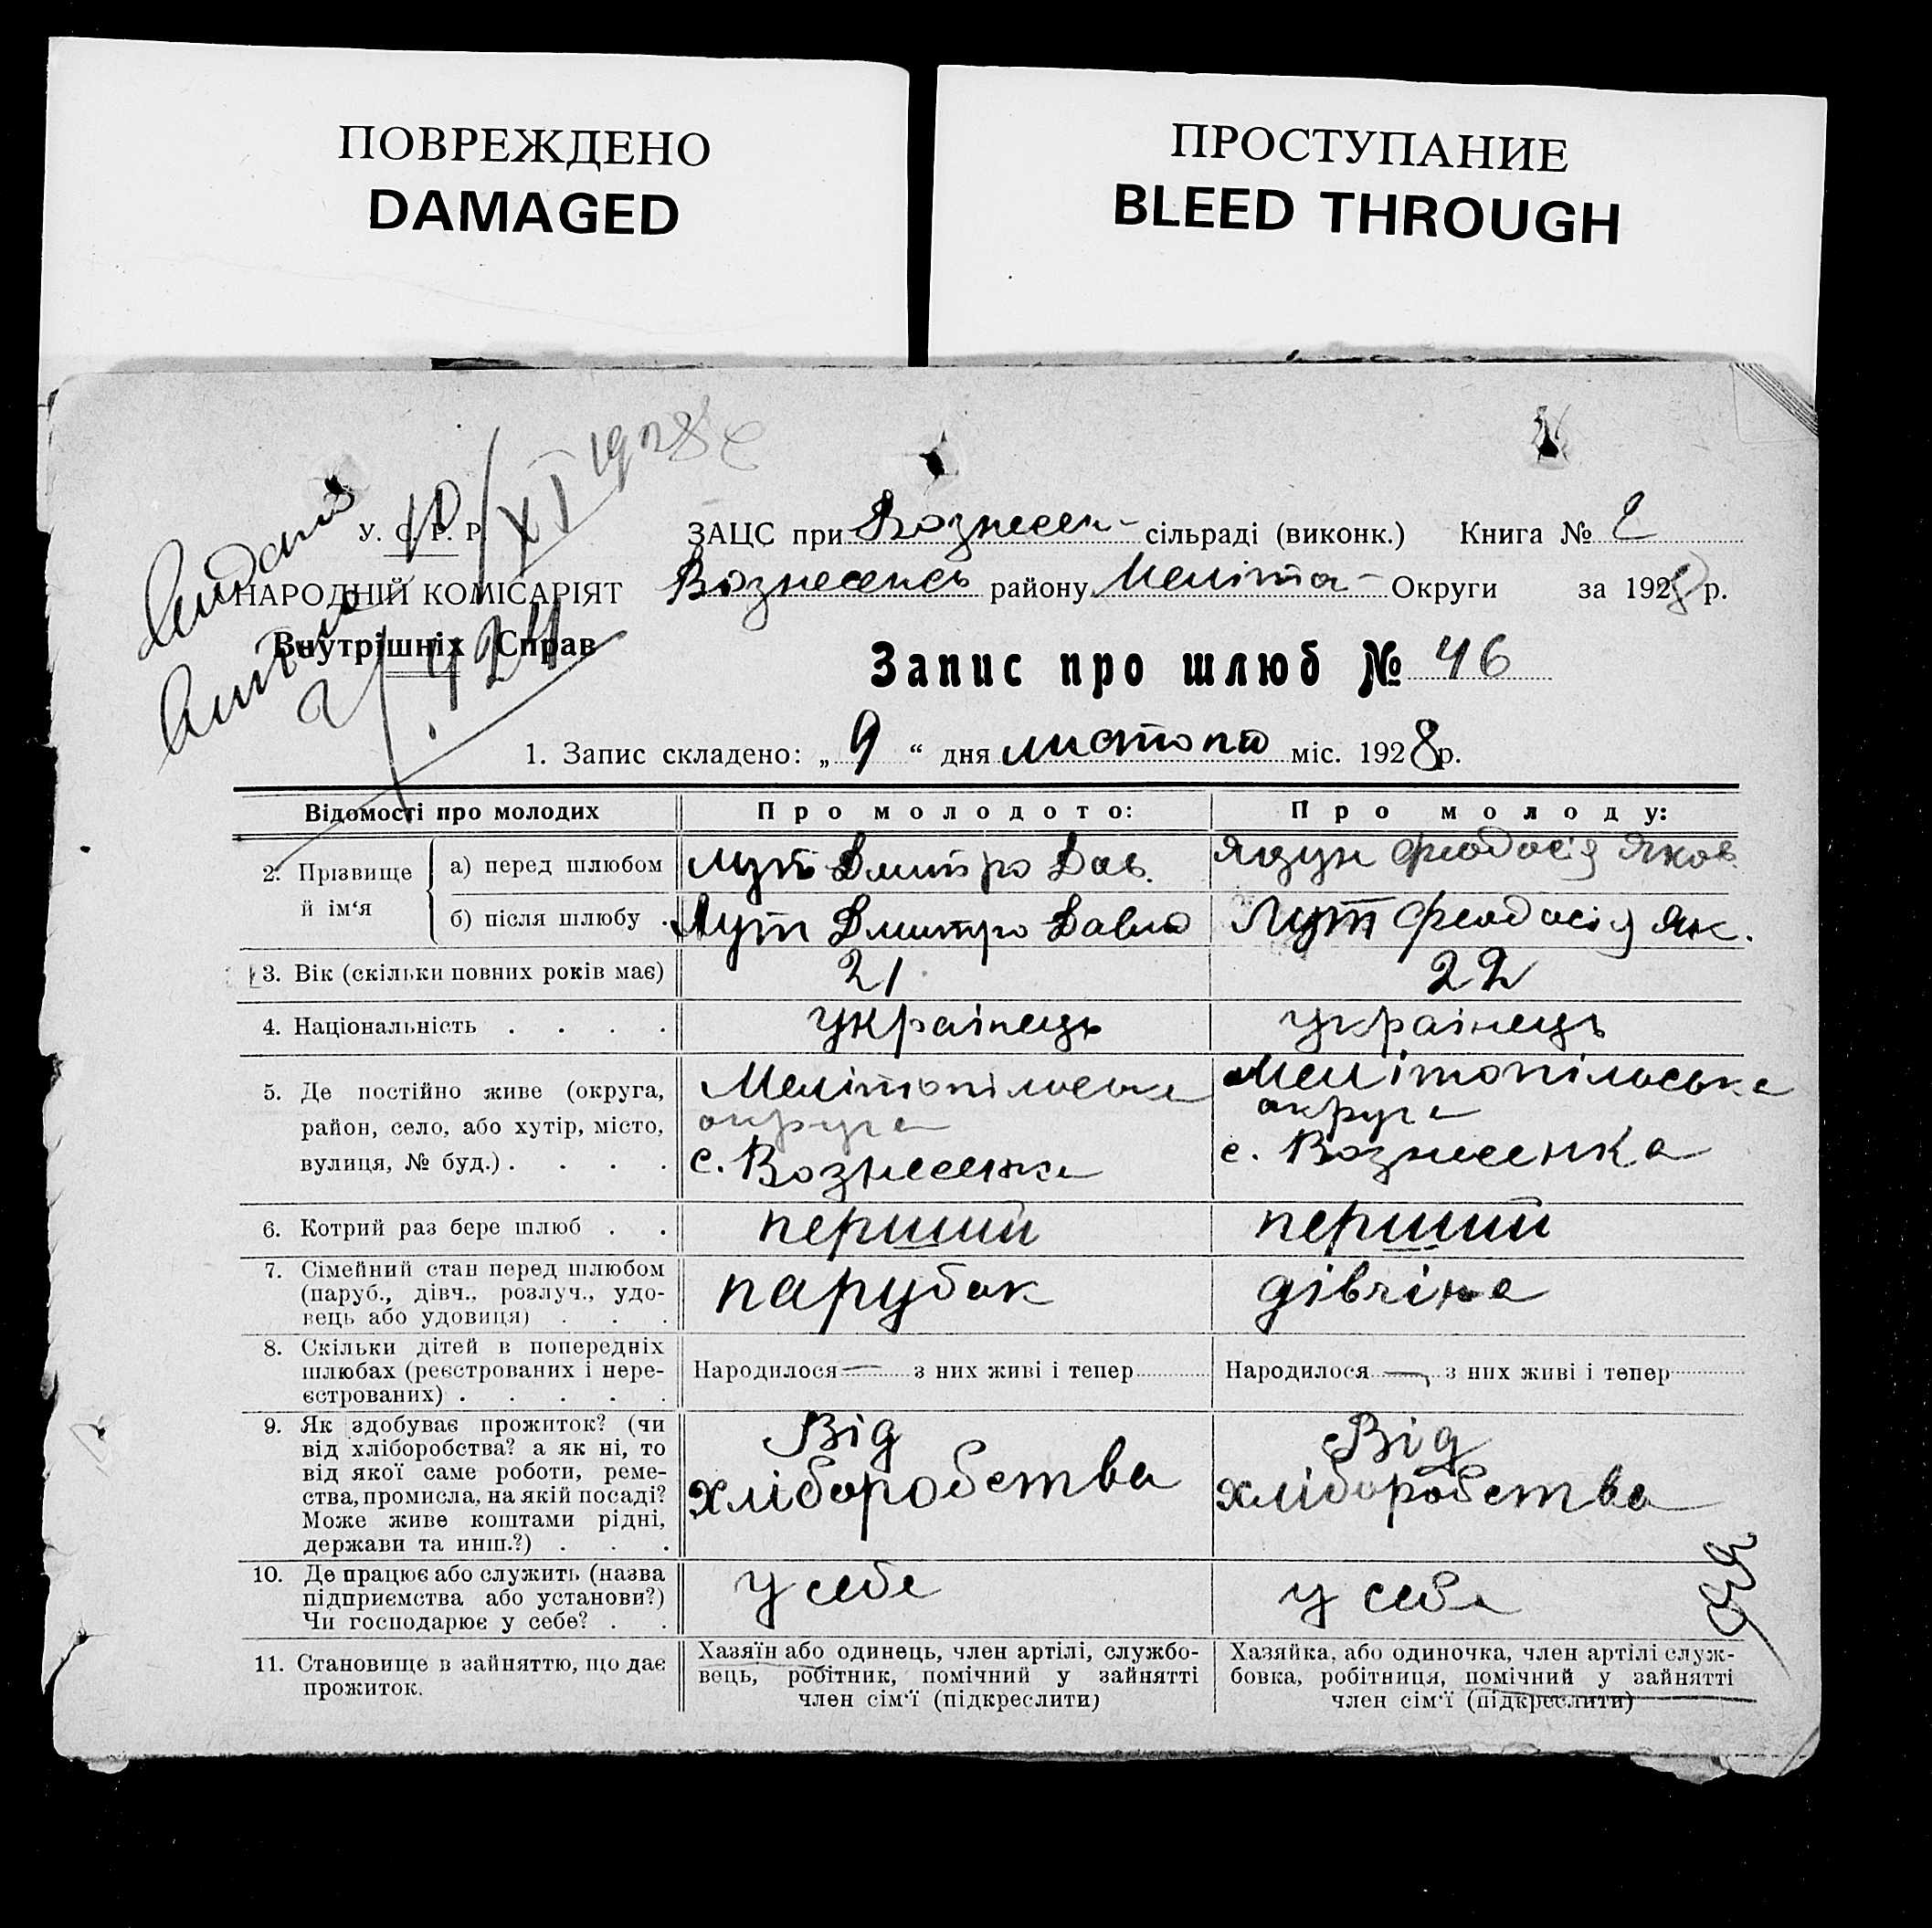 ПОВРЕЖДЕНО
DAMAGED
ПРОСТУПАНИЕ
BLEED THROUGH
10/XI 1928
У. С. Р. Р.
НАРОДНІЙ КОМІСАРІЯТ
Внутрішніх Справ
ЗАЦС при Вознесен- сільраді (виконк.) Книга №
Вознесенсь району Меліто- Округи за 1928 р.
Запис про шлюб № 46
1. Запис складено: „ 9 “ дня листопа міс. 1928 р.
Відомості про молодих
Про молодого:
Про молоду:
2. Прізвище й ім‘я
а) перед шлюбом
Лут Дмитро Дав.
Феодосія Яков
б) після шлюбу .
Лут Дмитро Давид
Лут Феодосія Як.
3. Вік (скільки повних років має)
21
22
4. Національність . . . .
українець
українець
5. Де постійно живе (округа,
район, село, або хутір, місто,
вулиця, № буд.) . . . .
Мелітопільська
округа
с. Вознесенка
Мелітопільська
округа
с. Вознесенка
6. Котрий раз бере шлюб . .
перший
перший
7. Сімейний стан перед шлюбом
(паруб., дівч., розлуч., удо-
вець або удовиця) . . .
парубок
дівчіна
8. Скільки дітей в попередніх
шлюбах (реєстрованих і нере-
єстрованих) . . . . .
Народилося — з них живі і тепер
Народилося — з них живі і тепер
9. Як здобуває прожиток? (чи
від хліборобства? а як ні, то
від якої саме роботи, реме-
ства, промисла, на якій посаді?
Може живе коштами рідні,
держави та инш.?) . . .
Від
хліборобства
Від
хліборобства
10. Де працює або служить (назва
підприємства або установи?)
Чи господарює у себе? . .
у себе
у себе
11. Становище в зайняттю, що дає
прожиток.
Хазяїн або одинець, член артілі, службо-
вець, робітник, помічний у зайнятті
член сім‘ї (підкреслити)
Хазяйка, або одиночка, член артілі служ-
бовка, робітниця, помічний у зайнятті
член сім‘ї (підкреслити)